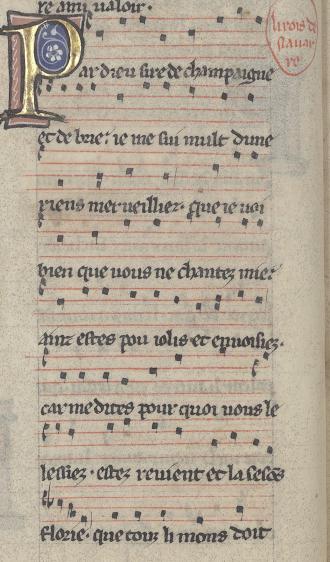 re ami ualoir.
li rois de
naua
rre
Par dieu sire de champaigne
et de brie. ie me sui mult dune
riens merueillier. que ie uoi
bien que uous ne chantez mie.
ainz estes pou iolis et enuoisiez.
car me dites pour quoi uous le
lessiez. estez reuient et la sesons
florie. que touz li mons doit